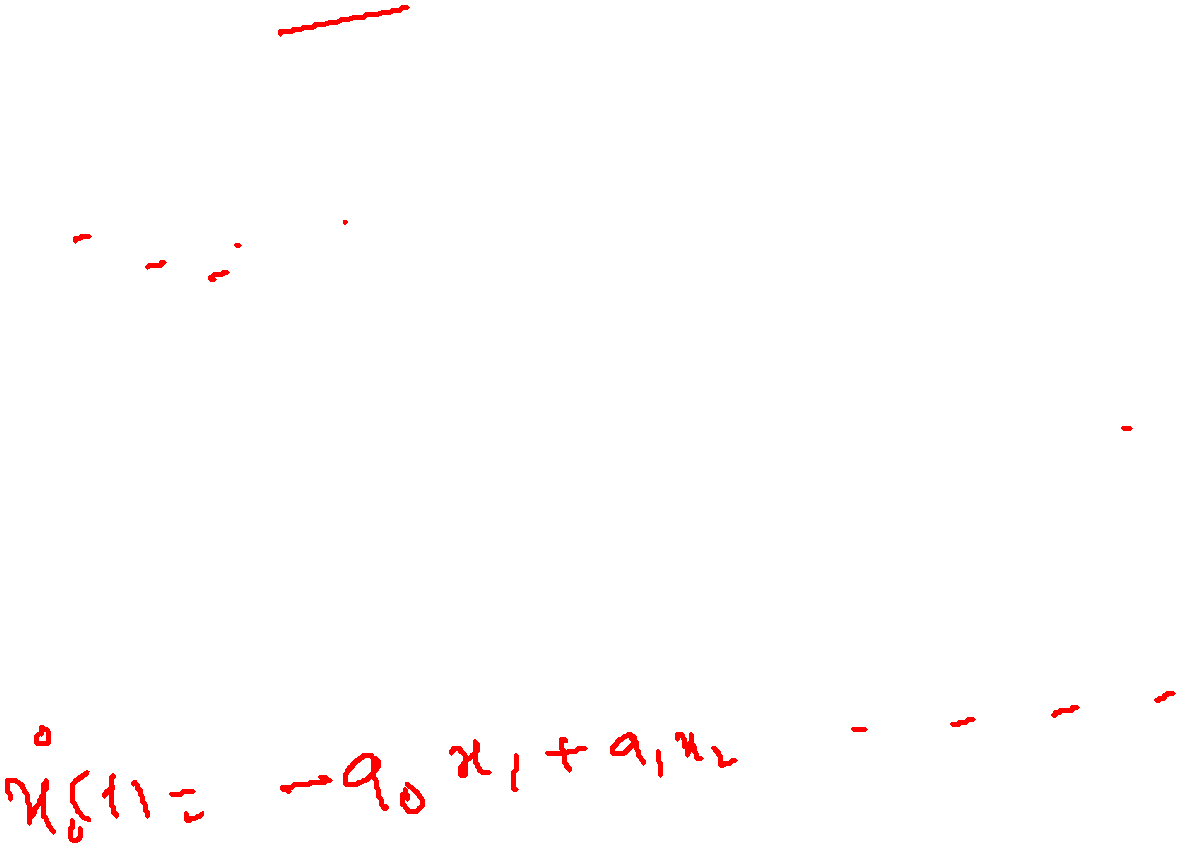 ẋ₀(t) = -a₀ x₁ + a₁ x₂ - - - -